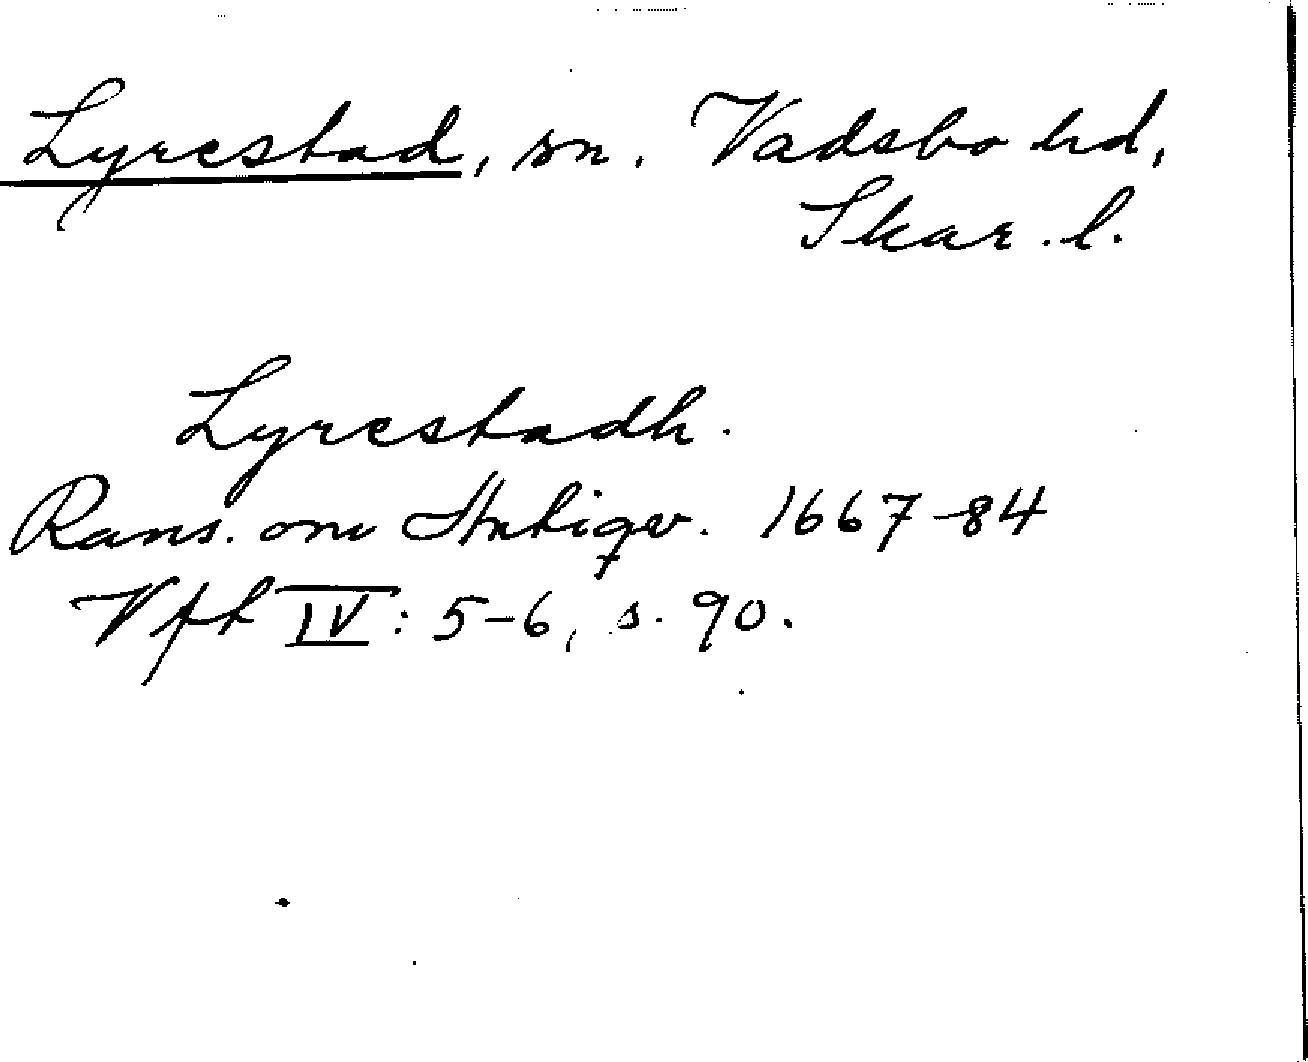 Lyrestad, sn. Vadsbo hd,
Skar. l.
Lyrestadh.
Rans. om Antiqv. 1667-84
Vft IV: 5-6, s. 90.